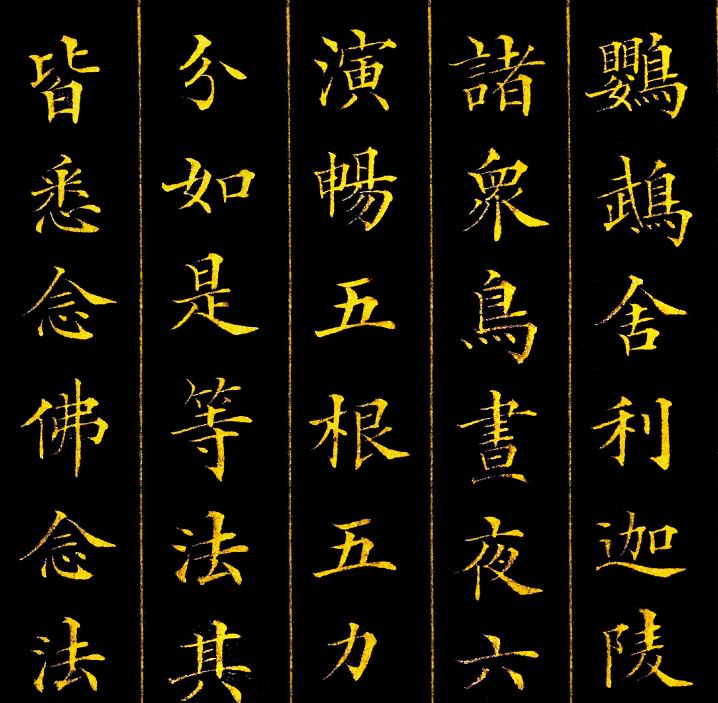 鸚鵡舍利迦陵
諸衆鳥晝夜六
演暢五根五力
分如是等法其
皆悉念佛念法